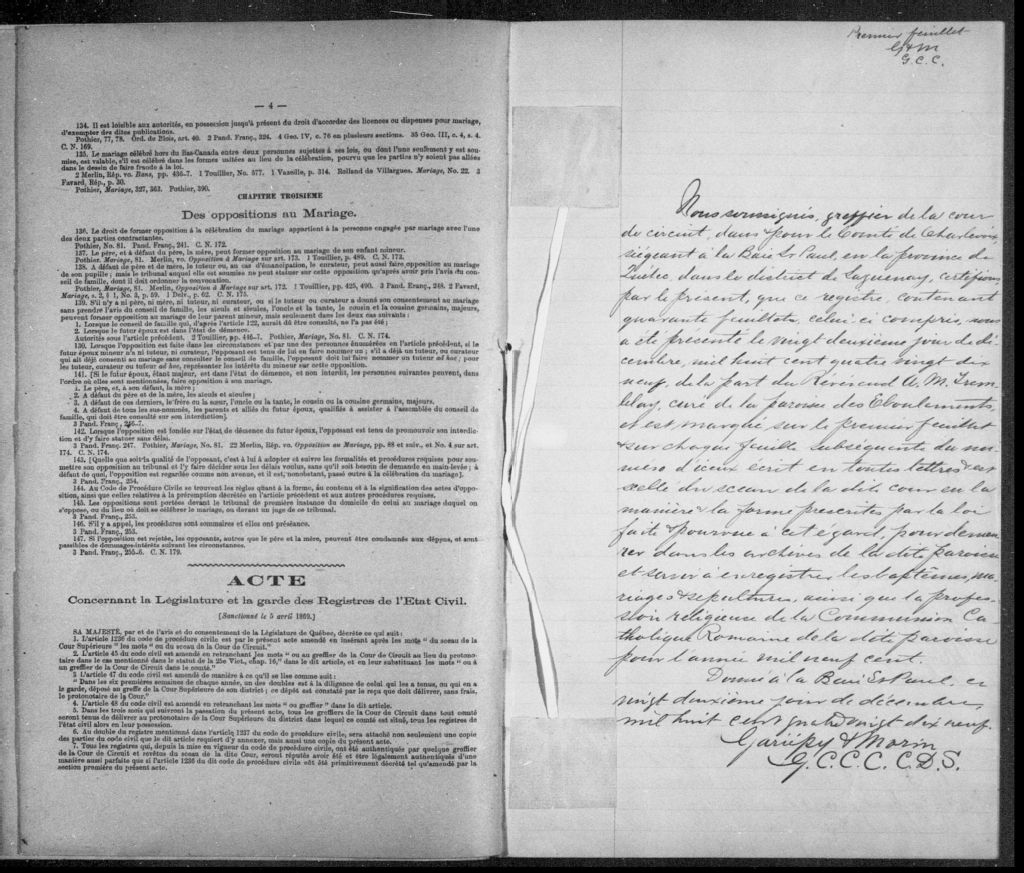 — 4 —
134. Il est loisible aux autorités, en possession jusqu'à présent du droit d'accorder des licences ou dispenses pour mariage,
d'exempter des dites publications.
Pothier, 77, 78. Ord. de Blois, art. 40. 2 Pand. Franç., 324. 4 Geo. IV, c. 76 en plusieurs sections. 35 Geo. III, c. 4, s. 4.
C. N. 169.
135. Le mariage célébré hors du Bas-Canada entre deux personnes sujettes à ses lois, ou dont l'une seulement y est sou-
mise, est valable, s'il est célébré dans les formes usitées au lieu de la célébration, pourvu que les parties n'y soient pas allées
dans le dessein de faire fraude à la loi.
2 Merlin, Rép. vo. Bans, pp. 436-7. 1 Touillier, No. 577. 1 Vazeille, p. 314. Rolland de Villargues. Mariage, No. 22. 3
Favard, Rép., p. 30.
Pothier, Mariage, 327, 363. Pothier, 390.
CHAPITRE TROISIEME
Des oppositions au Mariage.
136. Le droit de former opposition à la célébration du mariage appartient à la personne engagée par mariage avec l'une
des deux parties contractantes.
Pothier, No. 81. Pand. Franç., 241. C. N. 172.
137. Le père, et à défaut du père, la mère, peut former opposition au mariage de son enfant mineur.
Pothier. Mariage, 81. Merlin, vo. Opposition à Mariage sur art. 173. 1 Touillier, p. 489. C. N. 173.
138. A défaut de père et de mère, le tuteur ou, au cas d'émancipation, le curateur, peut aussi faire opposition au mariage
de son pupille; mais le tribunal auquel elle est soumise ne peut statuer sur cette opposition qu'après avoir pris l'avis du con-
seil de famille, dont il doit ordonner la convocation.
Pothier, Mariage, 81. Merlin, Opposition à Mariage sur art. 172. 1 Touillier, pp. 425, 490. 3 Pand. Franç., 248. 2 Favard,
Mariage, s. 2, § 1, No. 3, p. 59. 1 Delv., p. 62. C. N. 175.
139. S'il n'y a ni père, ni mère, ni tuteur, ni curateur, ou si le tuteur ou curateur a donné son consentement au mariage
sans prendre l'avis du conseil de famille, les aïeuls et aïeules, l'oncle et la tante, le cousin et la cousine germains, majeurs,
peuvent former opposition au mariage de leur parent mineur, mais seulement dans les deux cas suivants :
1. Lorsque le conseil de famille qui, d'après l'article 122, aurait dû être consulté, ne l'a pas été ;
2. Lorsque le futur époux est dans l'état de démence.
Autorités sous l'article précédent. 2 Touillier, pp. 446-7. Pothier, Mariage, No. 81. C. N. 174.
130. Lorsque l'opposition est faite dans les circonstances et par une des personnes énumérées en l'article précédent, si le
futur époux mineur n'a ni tuteur, ni curateur, l'opposant est tenu de lui en faire nommer un ; s'il a déjà un tuteur, ou curateur
qui ait déjà consenti au mariage sans consulter le conseil de famille, l'opposant doit lui faire nommer un tuteur ad hoc ; pour
les tuteur, curateur ou tuteur ad hoc, représenter les intérêts du mineur sur cette opposition.
141. [Si le futur époux, étant majeur, est dans l'état de démence, et non interdit, les personnes suivantes peuvent, dans
l'ordre où elles sont mentionnées, faire opposition à son mariage.
1. Le père, et, à son défaut, la mère ;
2. A défaut du père et de la mère, les aïeuls et aïeules ;
3. A défaut de ces derniers, le frère ou la sœur, l'oncle ou la tante, le cousin ou la cousine germains, majeurs.
4. A défaut de tous les sus-nommés, les parents et alliés du futur époux, qualifiés à assister à l'assemblée du conseil de
famille, qui doit être consulté sur son interdiction].
3 Pand. Franç., 246-7.
142. Lorsque l'opposition est fondée sur l'état de démence du futur époux, l'opposant est tenu de promouvoir son interdic-
tion et d'y faire statuer sans délai.
3 Pand. Franç. 247. Pothier, Mariage, No. 81. 22 Merlin, Rép. vo. Opposition au Mariage, pp. 88 et suiv., et No. 4 sur art.
174. C. N. 174.
143. [Quelle que soit la qualité de l'opposant, c'est à lui à adopter et suivre les formalités et procédures requises pour sou-
mettre son opposition au tribunal et l'y faire décider sous les délais voulus, sans qu'il soit besoin de demande en main-levée ; à
défaut de quoi, l'opposition est regardée comme non avenue, et il est, nonobstant, passé outre à la célébration du mariage].
3 Pand. Franç., 254.
144. Au Code de Procédure Civile se trouvent les règles quant à la forme, au contenu et à la signification des actes d'oppo-
sition, ainsi que celles relatives à la péremption décrétée en l'article précédent et aux autres procédures requises.
145. Les oppositions sont portées devant le tribunal de première instance du domicile de celui au mariage duquel on
s'oppose, ou du lieu où doit se célébrer le mariage, ou devant un juge de ce tribunal.
3 Pand. Franç., 253.
146. S'il y a appel, les procédures sont sommaires et elles ont préséance.
3 Pand. Franç., 253.
147. Si l'opposition est rejetée, les opposants, autres que le père et la mère, peuvent être condamnés aux dépens, et sont
passibles de dommages-intérêts suivant les circonstances.
3 Pand. Franç., 255-6. C. N. 179.
ACTE
Concernant la Législature et la garde des Registres de l'Etat Civil.
[Sanctionné le 5 avril 1869.]
SA MAJESTÉ, par et de l'avis et du consentement de la Législature de Québec, décrète ce qui suit:
1. L'article 1236 du code de procédure civile est par le présent acte amendé en insérant après les mots " du sceau de la
Cour Supérieure " les mots " ou du sceau de la Cour de Circuit."
2. L'article 45 du code civil est amendé en retranchant les mots " ou au greffier de la Cour de Circuit au lieu du protono-
taire dans le cas mentionné dans le statut de la 25e Vict., chap. 16," dans le dit article, et en leur substituant les mots " ou à
un greffier de la Cour de Circuit dans le comté."
3 L'article 47 du code civil est amendé de manière à ce qu'il se lise comme suit:
" Dans les six premières semaines de chaque année, un des doubles est à la diligence de celui qui les a tenus, ou qui en a
le garde, déposé au greffe de la Cour Supérieure de son district ; ce dépôt est constaté par le reçu que doit délivrer, sans frais,
le protonotaire de la Cour."
4. L'article 48 du code civil est amendé en retranchant les mots "ou greffier" dans le dit article.
5. Dans les trois mois qui suivront la passation du présent acte, tous les greffiers de la Cour de Circuit dans tout comté
seront tenus de délivrer au protonotaire de la Cour Supérieure du district dans lequel ce comté est situé, tous les registres de
l'état civil alors en leur possession.
6. Au double du registre mentionné dans l'article 1237 du code de procédure civile, sera attaché non seulement une copie
des parties du code civil que le dit article requiert d'y annexer, mais aussi une copie du présent acte.
7. Tous les registres qui, depuis la mise en vigueur du code de procédure civile, ont été authentiqués par quelque greffier
de la Cour de Circuit et revêtus du sceau de la dite Cour, seront réputés avoir été et être légalement authentiqués d'une
manière aussi parfaite que si l'article 1236 du dit code de procédure civile eût été primitivement décrété tel qu'amendé par la
section première du présent acte.
Premier feuillet
G & M
G. C. C.
Nous soussignés, greffier de la cour
de circuit, dans & pour le Comté de Charlevoix,
siégeant à la Baie St Paul, en la province de
Québec dans le district de Saguenay, certifions
par le présent, que ce registre, contenant
quarante feuillets, celui ci compris, nous
a été présenté le vingt deuxième jour de dé-
cembre, mil huit cent quatre vingt dix
neuf, de la part du Révérend A. M. Trem-
blay, curé de la paroisse des Eboulements,
et est marqué sur le premier feuillet
& sur chaque feuille subséquente du nu-
méro d'iceux écrit en toutes lettres & est
scellé du sceau de la dite cour en la
manière & la forme prescrites par la loi
faite & pourvue à cet égard, pour demeu-
rer dans les archives de la dite paroisse
et servir à enregistrer les baptêmes, ma-
riages & sépultures, ainsi que la profes-
sion religieuse de la Communion Ca-
tholique Romaine de la dite paroisse
pour l'année mil neuf cent.
Donné à la Baie St Paul, ce
vingt deuxième jour de décembre,
mil huit cent quatre vingt dix neuf.
Gariépy & Morin
G. C. C. C. D. S.